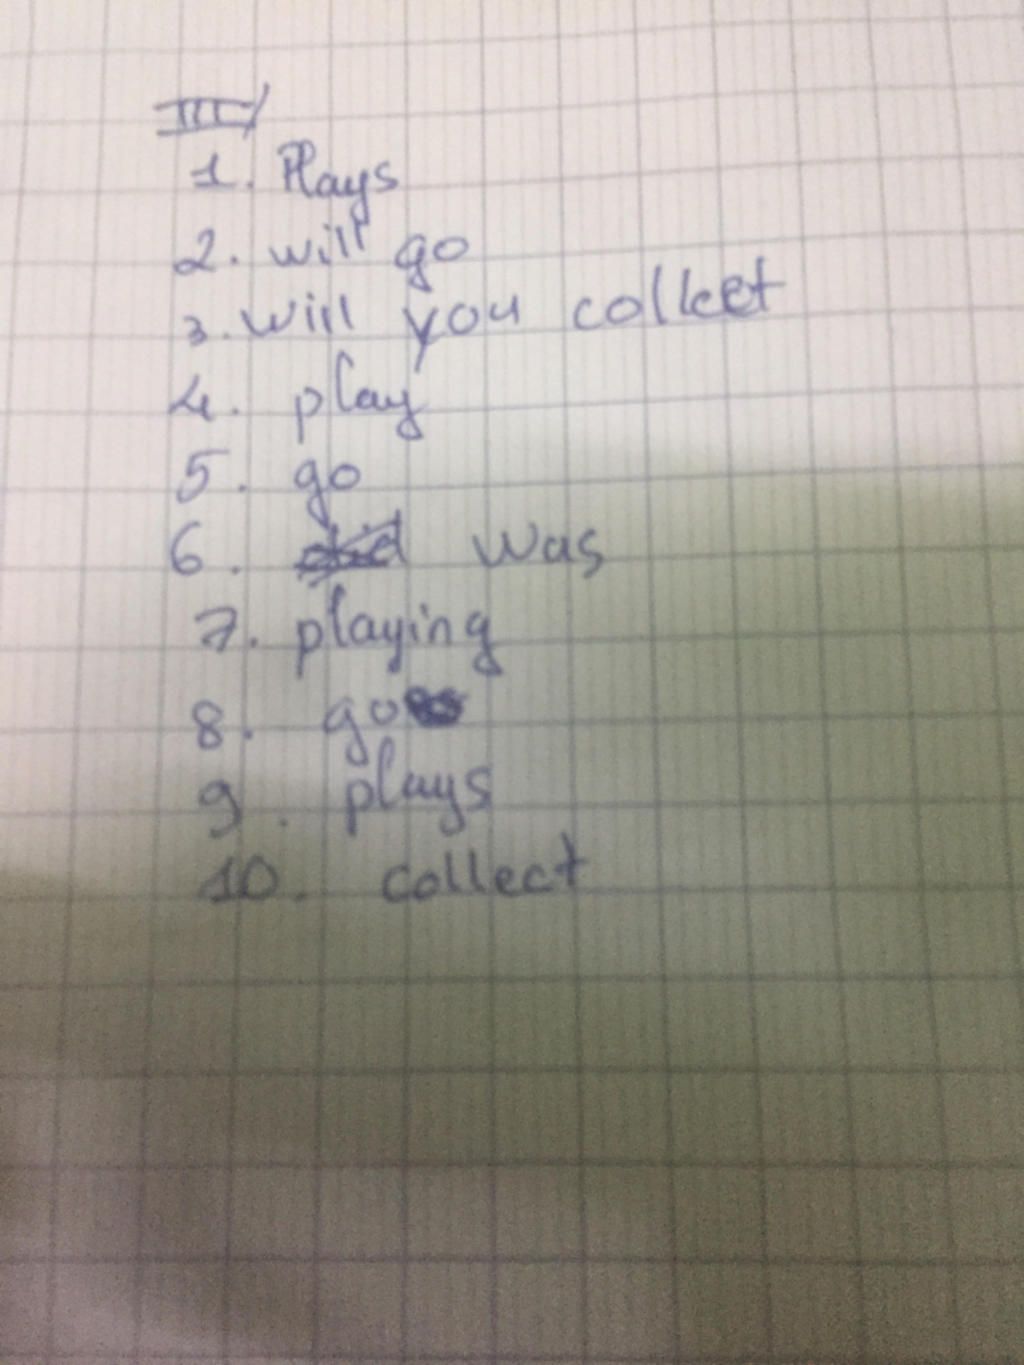 III/
1. Plays
2. will go
3. will you collect
4. play
5. go
6. did was
7. playing
8. go
9. plays
10. collect